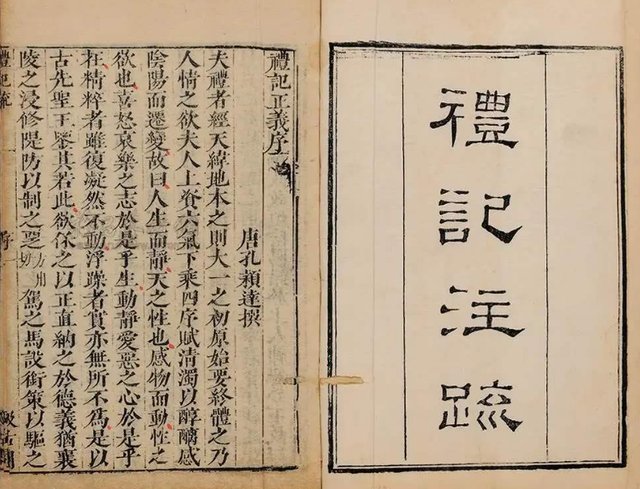 禮記注疏
禮記正義序
唐孔穎達撰
夫禮者經天緯地本之則大一之初原始要終體之乃
人情之欲夫人上資六氣下乘四序賦清濁以醇醨感
陰陽而遷變故曰人生而靜天之性也感物而動性之
欲也喜怒哀樂之志於是乎生動靜愛惡之心於是乎
在精粹者雖復凝然不動浮躁者實亦無所不爲是以
古先聖王鑒其若此欲保之以正直納之於德義猶襄
陵之浸修隄防以制之覂駕之馬設銜策以驅之
禮記疏
序
一
汲古閣